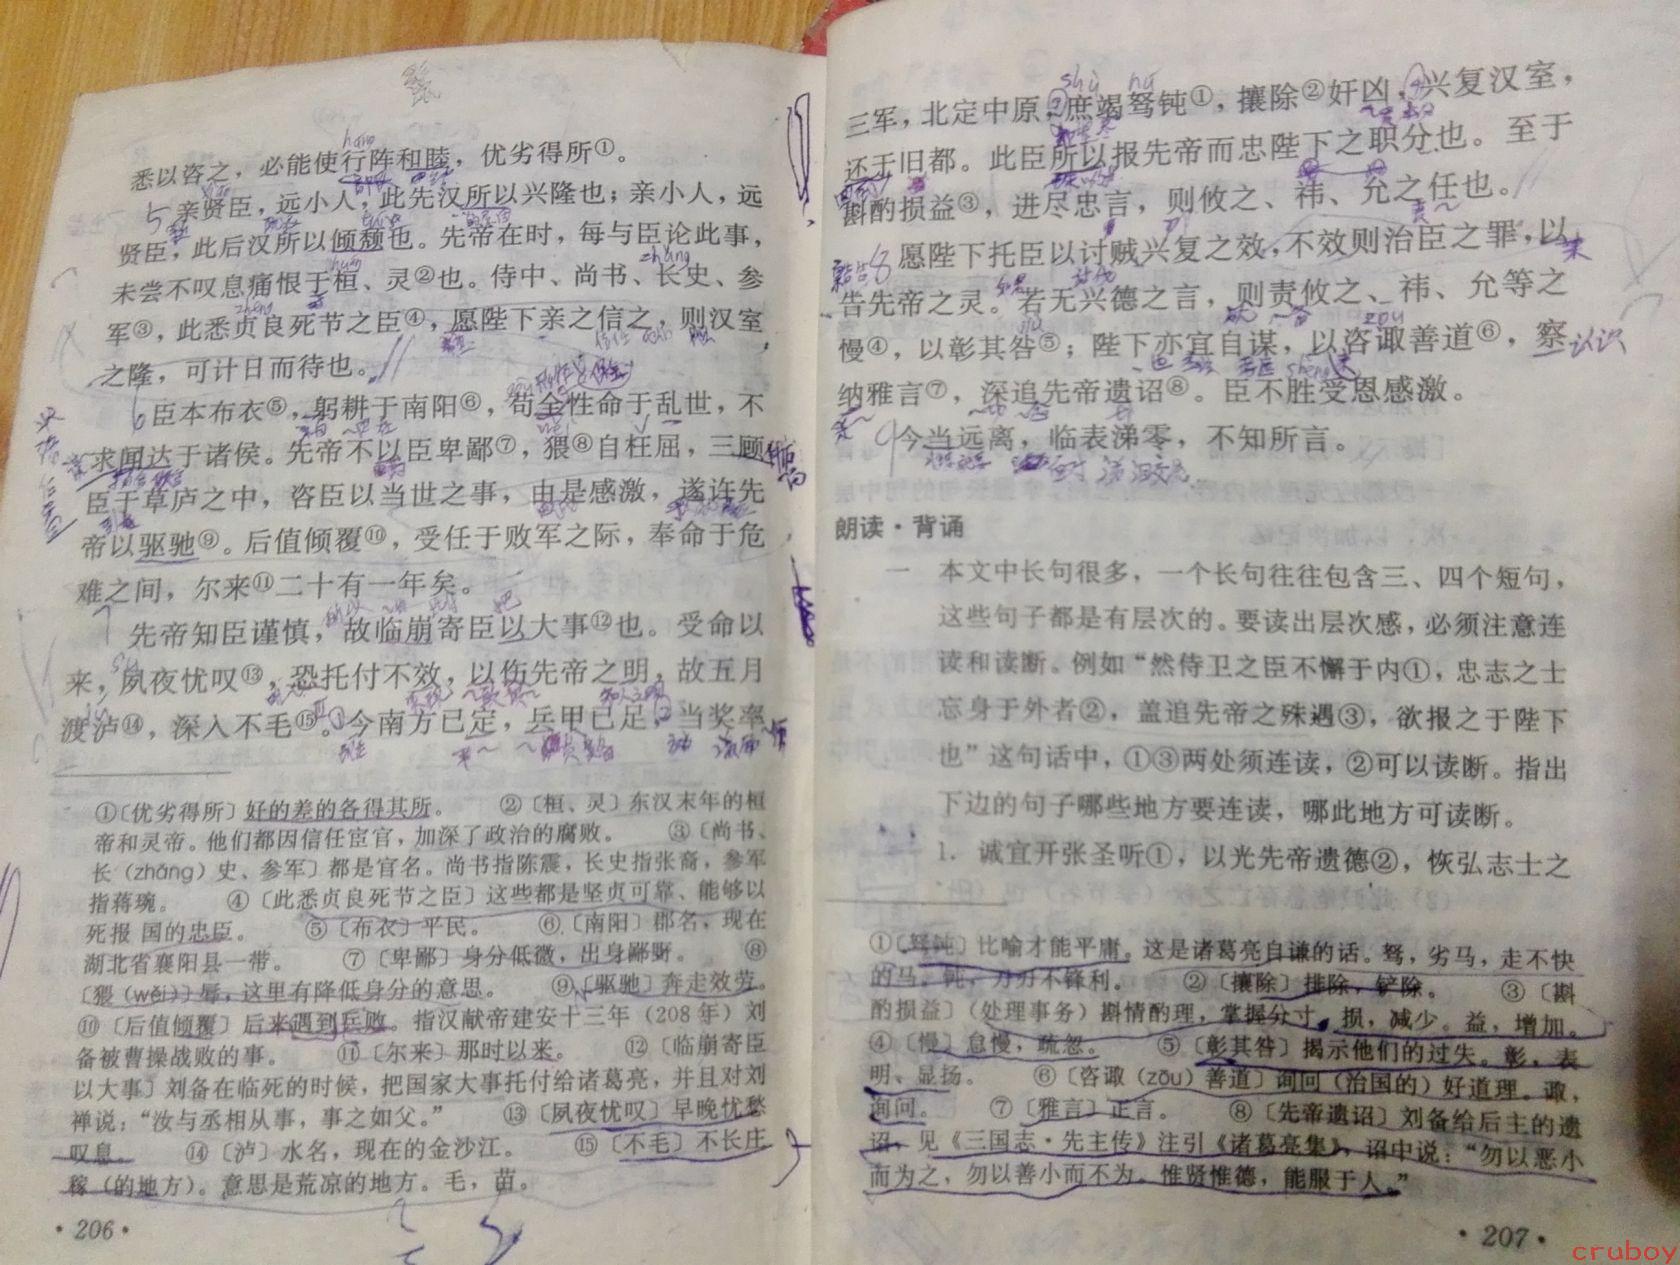 悉以咨之，必能使行阵和睦，优劣得所①。
亲贤臣，远小人，此先汉所以兴隆也；亲小人，远
贤臣，此后汉所以倾颓也。先帝在时，每与臣论此事，
未尝不叹息痛恨于桓、灵②也。侍中、尚书、长史、参
军③，此悉贞良死节之臣④，愿陛下亲之信之，则汉室
之隆，可计日而待也。
臣本布衣⑤，躬耕于南阳⑥，苟全性命于乱世，不
求闻达于诸侯。先帝不以臣卑鄙⑦，猥⑧自枉屈，三顾
臣于草庐之中，咨臣以当世之事，由是感激，遂许先
帝以驱驰⑨。后值倾覆⑩，受任于败军之际，奉命于危
难之间，尔来⑪二十有一年矣。
先帝知臣谨慎，故临崩寄臣以大事⑫也。受命以
来，夙夜忧叹⑬，恐托付不效，以伤先帝之明，故五月
渡泸⑭，深入不毛⑮。今南方已定，兵甲已足，当奖率
①〔优劣得所〕好的差的各得其所。 ②〔桓、灵〕东汉末年的桓
帝和灵帝。他们都因信任宦官，加深了政治的腐败。 ③〔尚书、
长（zhǎng）史、参军〕都是官名。尚书指陈震，长史指张裔，参军
指蒋琬。 ④〔此悉贞良死节之臣〕这些都是坚贞可靠、能够以
死报 国的忠臣。 ⑤〔布衣〕平民。 ⑥〔南阳〕郡名，现在
湖北省襄阳县一带。 ⑦〔卑鄙〕身分低微，出身鄙野。 ⑧
〔猥（wěi）〕辱，这里有降低身分的意思。 ⑨〔驱驰〕奔走效劳。
⑩〔后值倾覆〕后来遇到兵败。指汉献帝建安十三年（208年）刘
备被曹操战败的事。 ⑪〔尔来〕那时以来。 ⑫〔临崩寄臣
以大事〕刘备在临死的时候，把国家大事托付给诸葛亮，并且对刘
禅说：“汝与丞相从事，事之如父。” ⑬〔夙夜忧叹〕早晚忧愁
叹息。 ⑭〔泸〕水名，现在的金沙江。 ⑮〔不毛〕不长庄
稼（的地方）。意思是荒凉的地方。毛，苗。
·206·
三军，北定中原，庶竭驽钝①，攘除②奸凶，兴复汉室，
还于旧都。此臣所以报先帝而忠陛下之职分也。至于
斟酌损益③，进尽忠言，则攸之、祎、允之任也。
愿陛下托臣以讨贼兴复之效，不效则治臣之罪，以
告先帝之灵。若无兴德之言，则责攸之、祎、允等之
慢④，以彰其咎⑤；陛下亦宜自谋，以咨诹善道⑥，察
纳雅言⑦，深追先帝遗诏⑧。臣不胜受恩感激。
今当远离，临表涕零，不知所言。
朗读·背诵
一 本文中长句很多，一个长句往往包含三、四个短句，
这些句子都是有层次的。要读出层次感，必须注意连
读和读断。例如“然侍卫之臣不懈于内①，忠志之士
忘身于外者②，盖追先帝之殊遇③，欲报之于陛下
也”这句话中，①③两处须连读，②可以读断。指出
下边的句子哪些地方要连读，哪此地方可读断。
1. 诚宜开张圣听①，以光先帝遗德②，恢弘志士之
①〔驽钝〕比喻才能平庸。这是诸葛亮自谦的话。驽，劣马，走不快
的马。钝，刀刃不锋利。 ②〔攘除〕排除，铲除。 ③〔斟
酌损益〕（处理事务）斟情酌理，掌握分寸。损，减少。益，增加。
④〔慢〕怠慢，疏忽。 ⑤〔彰其咎〕揭示他们的过失。彰，表
明、显扬。 ⑥〔咨诹（zōu）善道〕询问（治国的）好道理。诹，
询问。 ⑦〔雅言〕正言。 ⑧〔先帝遗诏〕刘备给后主的遗
诏，见《三国志·先主传》注引《诸葛亮集》，诏中说：“勿以恶小
而为之，勿以善小而不为。惟贤惟德，能服于人。”
·207·
cruboy